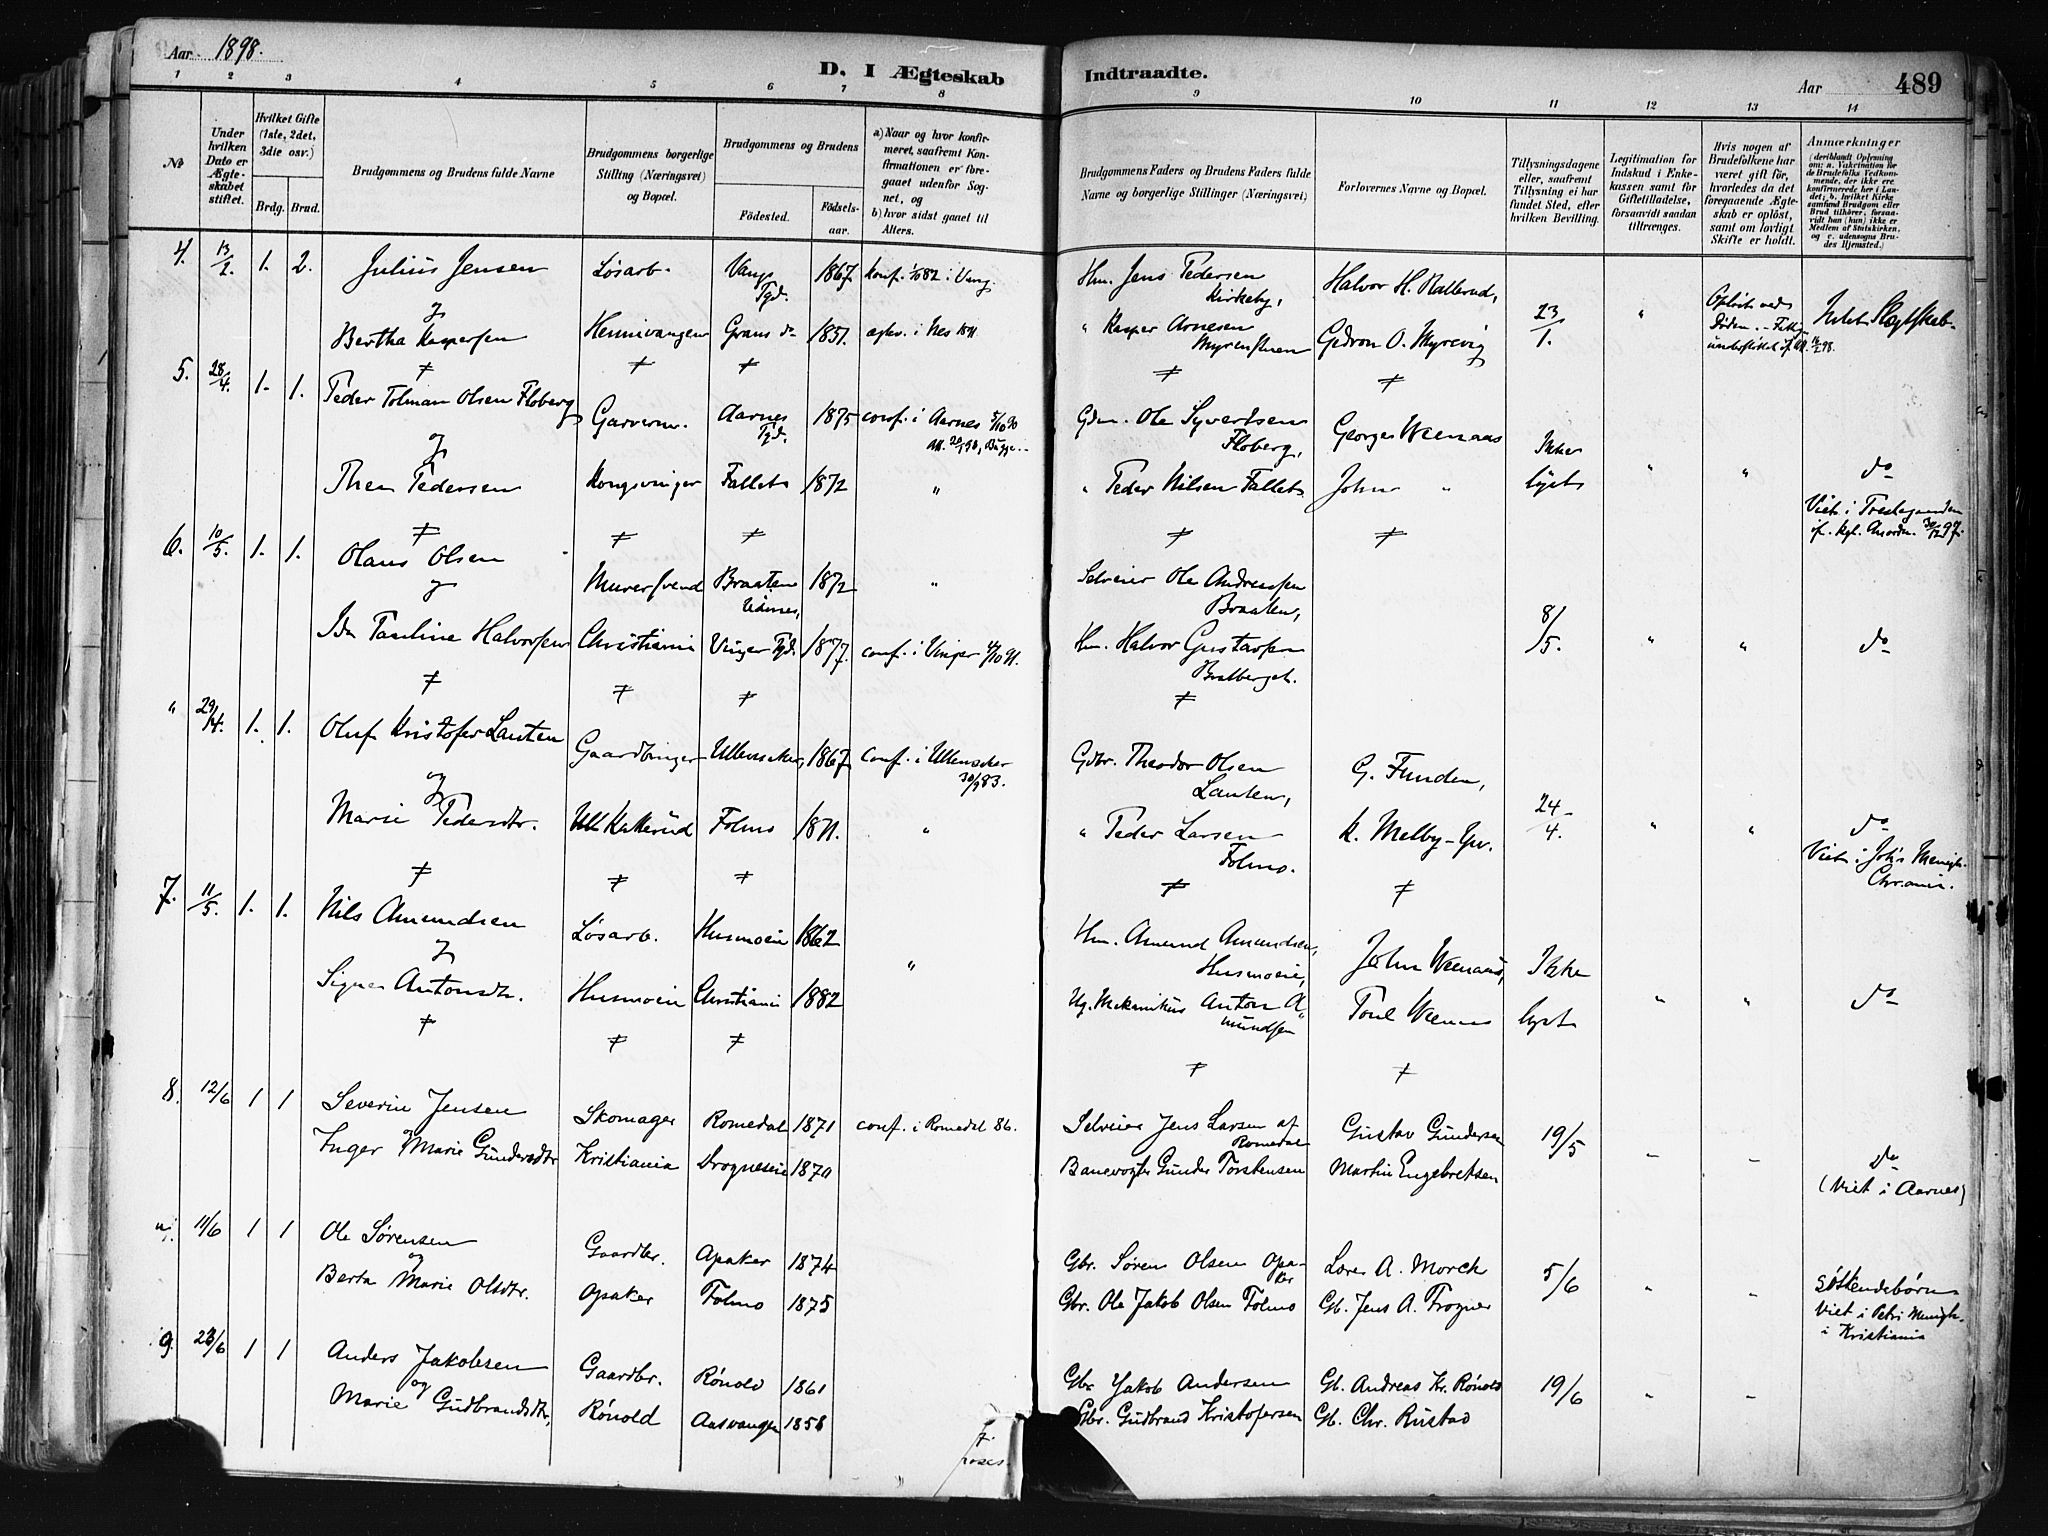 Aar 1898.
D. I Ægteskab Indtraadte.
Aar 489
1 2 3 4 5 6 7 8 9 10 11 12 13 14
No
Under hvilken Dato er Ægteskabet stiftet.
Hvilket Gifte (1ste, 2det, 3die osv.)
Brdg. Brud.
Brudgommens og Brudens fulde Navne
Brudgommens borgerlige Stilling (Næringsvei) og Bopæl.
Brudgommens og Brudens
Fødested.
Fødselsaar.
a) Naar og hvor konfirmeret, saafremt Konfirmationen er foregaaet udenfor Sognet, og
b) hvor sidst gaaet til Alters.
Brudgommens Faders og Brudens Faders fulde Navne og borgerlige Stillinger (Næringsvei)
Forlovernes Navne og Bopæl.
Tillysningsdagene eller, saafremt Tillysning ei har fundet Sted, efter hvilken Bevilling.
Legitimation for Indskud i Enkekassen samt for Giftetilladelse, forsaavidt saadan tiltrænges.
Hvis nogen af Brudefolkene har været gift før, hvorledes da det foregaaende Ægteskab er opløst, samt om lovligt Skifte er holdt.
Anmærkninger
(deriblandt Oplysning om: a. Vakcination for de Brudefolks Vedkommende, der ikke ere konfirmerede her i Landet; b. hvilket Kirkesamfund Brudgom eller Brud tilhører, forsaavidt han (hun) ikke er Medlem af Statskirken, og c. udensogns Brudes Hjemsted.)
4. 13/2. 1. 2. Julius Jensen Løsarb. Vangs Pgd. 1867 konf. 1/10 82 i Vang. Hm. Jens Pedersen Kirkeby, Halvor H. Rallerud, 23/1. " Opløst ved Døden. Intet Slægtskab.
og
Bertha Kaspersen Grans do 1851 i Nes " Kasper Arnesen
5. 28/4. 1. 1. Peder Tolman Olsen Floberg Garversv. Aarnes Pgd. 1875 conf. i Aarnes 5/10 90 Gdm. Ole Syvertsen Floberg, Georges Weenaas Ikke
og
Thea Pedersen Kongsvinger Fallet 1872 " " Peder Nilsen Fallet John " lyst " " do
Viet i
6. 10/5. 1. 1. Olaus Olsen Murersvend Braaten Udenes, 1872 " Selveier Ole Andreassen Braaten, 8/5. " " do
og
Ida Pauline Halvorsen Christiania Vinger Pgd. 1877. conf. i Vinger 4/10 91. Hm. Halvor Gustavsen Bratberget.
" 29/4. 1. 1. Oluf Kristofer Lauten Gaardbruger Ullensaker, 1867 conf. i Ullensaker 30/9 83. Gdbr. Theodor Olsen Lauten, G. Funder, 24/4. " " do
og
Marie Pedersdtr. Kakkerud Folmo 1871. " " Peder Larsen Folmo. K. Melby
Viet i Joh's Menigh. Chr.ania.
7. 11/5. 1. 1. Nils Amundsen Løsarb. Husmoeie 1862 " Hm. Amund Amundsen, Husmoeie, John Weenaas, Ikke
og
Signe Antonsdtr. Husmoeie Christiania 1882 Ug. Mekanikus Anton Amundsen Poul Weenaas lyst " " do
8. 12/6 1 1 Severin Jensen Skomager Romedal 1871 conf. i Romedal 86. Selveier Jens Larsen af Romedal Gustav Gundersen 19/5
og
Inger Marie Gundersdtr Kristiania Drogneseie 1870 Banevogter Gunder Torstensen Martin Engebretsen - - do
(Viet i Aarnes)
". 11/6 1 1 Ole Sørensen Gaardbr. Opaker 1874 Gbr. Søren Olsen Opaker Lærer A. Morck 5/6 " "
og
Berta Marie Olsdtr. Opaker Folmo 1875 Gbr. Ole Jakob Olsen Folmo Gb. Jens A. Frogner Søskendebørn
Viet i Petri Menigh. i Kristiania
9. 23/6 1 1 Anders Jakobsen Gaardbr. Rønold 1861 Gbr. Jakob Andersen Gb. Andreas Kr. Rønold 19/6 " -
og
Marie Gudbrandsdtr, Rønold Aasvangen 1858 Gbr. Gudbrand Kristofersen Gb. Chr. Rustad